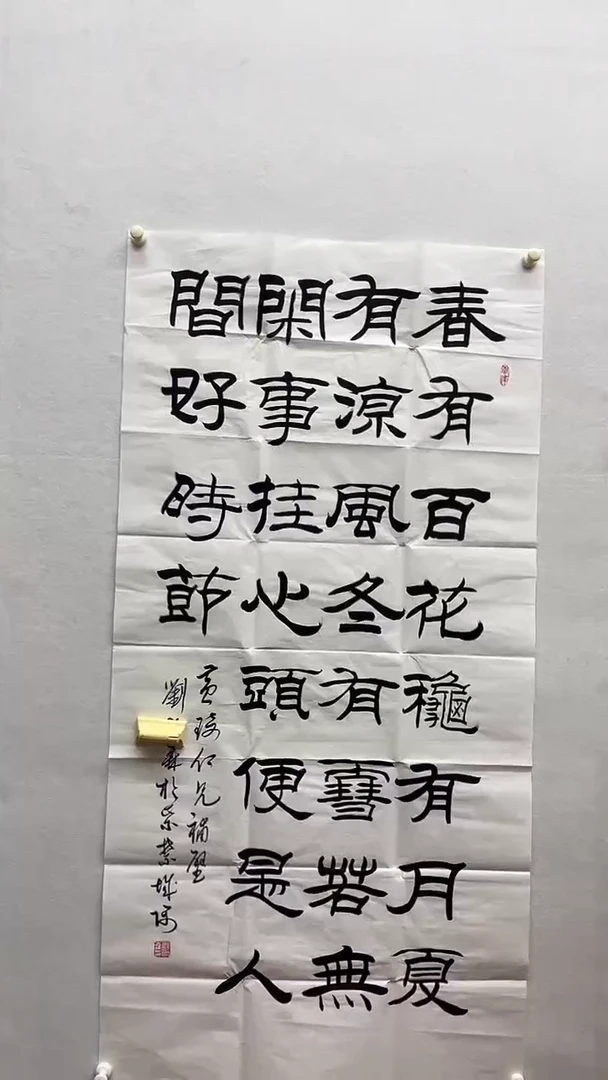 春有百花龝有月夏
有涼風冬有雪若無
閑事挂心頭便是人
間好時節
仁兄補壁
劉